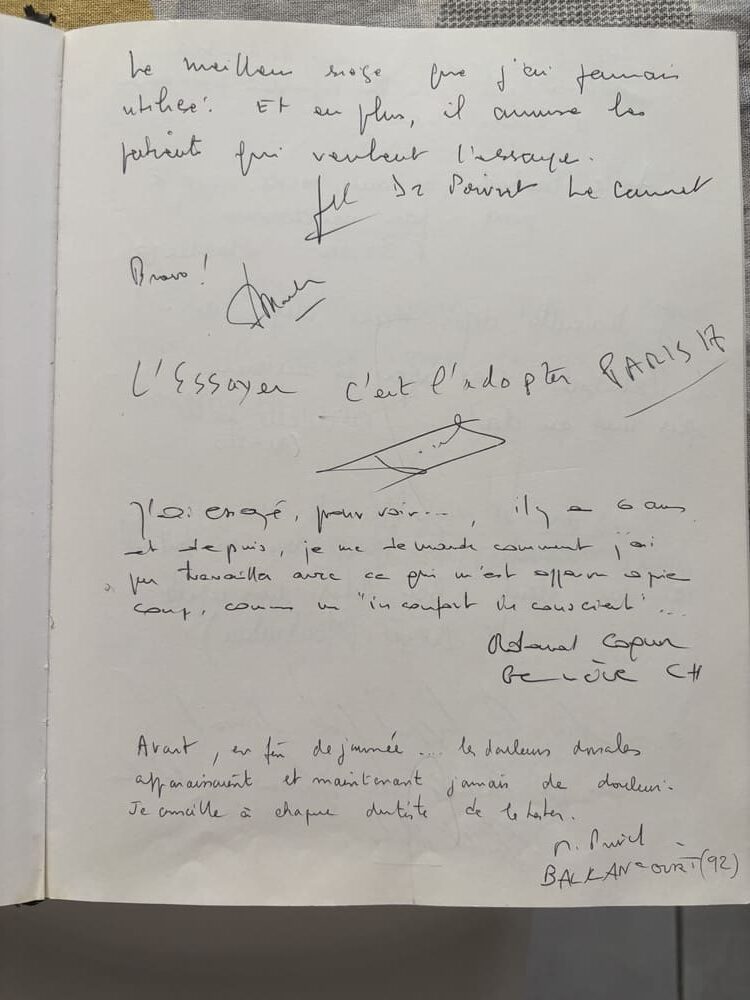 Le meilleur siège que j'ai jamais
utilisé. Et en plus, il amuse les
patients qui veulent l'essaye.
Dr Le Cannet
Bravo!
L'Essayer c'est l'adopter PARIS 17
J'ai essayé, pour voir..., il y a 6 ans
et depuis, je me demande comment j'ai
pu travailler avec ce qui m'est apparu après
coup, comme un "inconfort inconscient"...
Roland
GENÈVE CH
Avant, en fin de journée... les douleurs dorsales
apparaissaient et maintenant jamais de douleur.
Je conseille à chaque dentiste de le tester.
(92)